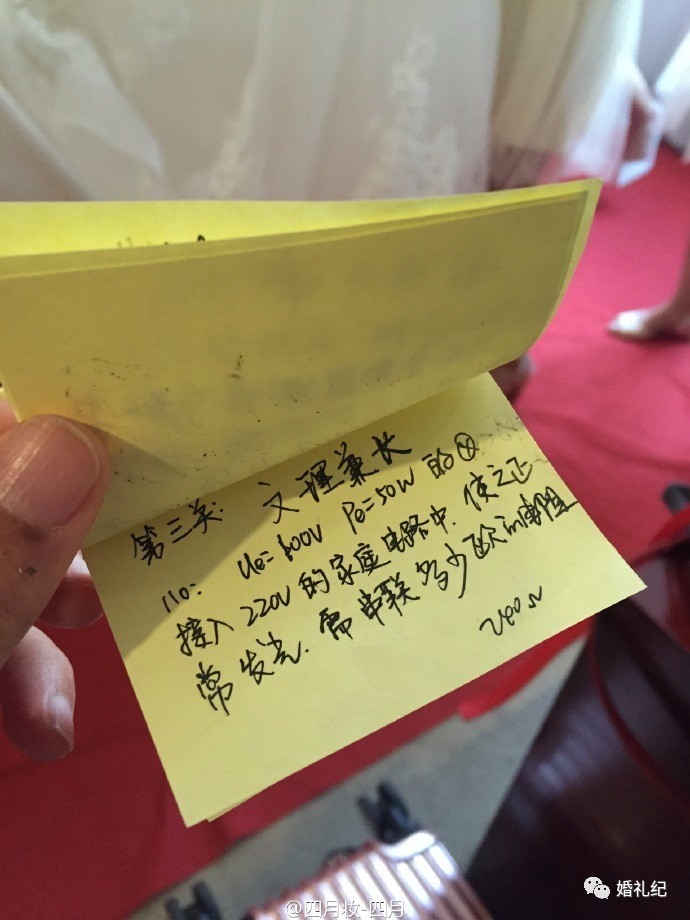 第三类: 文理兼长
110: Ue=100V Pe=50W 的⊗
接入220V的家庭电路中.使之正
常发光.需串联多少欧的电阻
240Ω
婚礼纪
@四月妆-四月